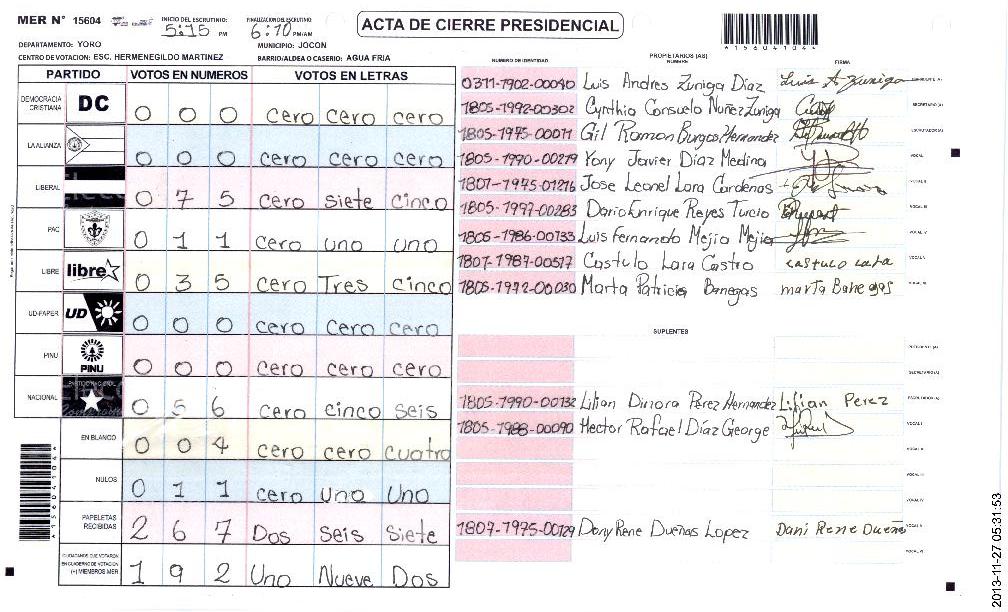 MER N° 15604
INICIO DEL ESCRUTINIO: 5:15 PM
FINALIZACION DEL ESCRUTINIO: 6:10 PM/AM
ACTA DE CIERRE PRESIDENCIAL
41560410444
DEPARTAMENTO: YORO
MUNICIPIO: JOCON
CENTRO DE VOTACION: ESC. HERMENEGILDO MARTINEZ
BARRIO/ALDEA O CASERIO: AGUA FRIA
PARTIDO VOTOS EN NUMEROS VOTOS EN LETRAS
DEMOCRACIA CRISTIANA DC 0 0 0 cero cero cero
LA ALIANZA 0 0 0 cero cero cero
LIBERAL 0 7 5 cero siete cinco
PAC 0 1 1 cero uno uno
LIBRE libre 0 3 5 cero Tres cinco
UD-FAPER UD 0 0 0 cero cero cero
PINU PINU 0 0 0 cero cero cero
NACIONAL 0 5 6 cero cinco seis
EN BLANCO 0 0 4 cero cero cuatro
NULOS 0 1 1 cero uno Uno
PAPELETAS RECIBIDAS 2 6 7 Dos seis siete
CIUDADANOS QUE VOTARON EN CUADERNO DE VOTACION (+) MIEMBROS MER 1 9 2 Uno Nueve Dos
PROPIETARIOS (AS)
NUMERO DE IDENTIDAD NOMBRE FIRMA
0311-1902-00040 Luis Andres Zuniga Diaz Luis A Zuniga
1805-1992-00302 Cynthio Consuelo Nuñez Zuniga SECRETARIO (A)
1805-1975-00011 Gil Ramon Burgos Hernandez
1805-1990-00219 Yony Javier Diaz Medina VOCAL
1807-1975-01216 Jose Leonel Lara Cardenas
1805-1997-00283 Dario Enrique Reyes Turcio
1805-1986-00733 Luis Fernando Mejia Mejia
1807-1987-00517 Castulo Lara Castro castulo lara
1805-1972-00030 Marta Patricia Banegas marta Banegas
SUPLENTES
PRESIDENTE (A)
SECRETARIO (A)
1805-1990-00732 Lilian Dinora Perez Hernandez Lilian Perez
1805-1988-00090 Hector Rafael Diaz George
1807-1975-00129 Dony Rene Dueñas Lopez Dani Rene Dueñas
2013-11-27 05:31:53